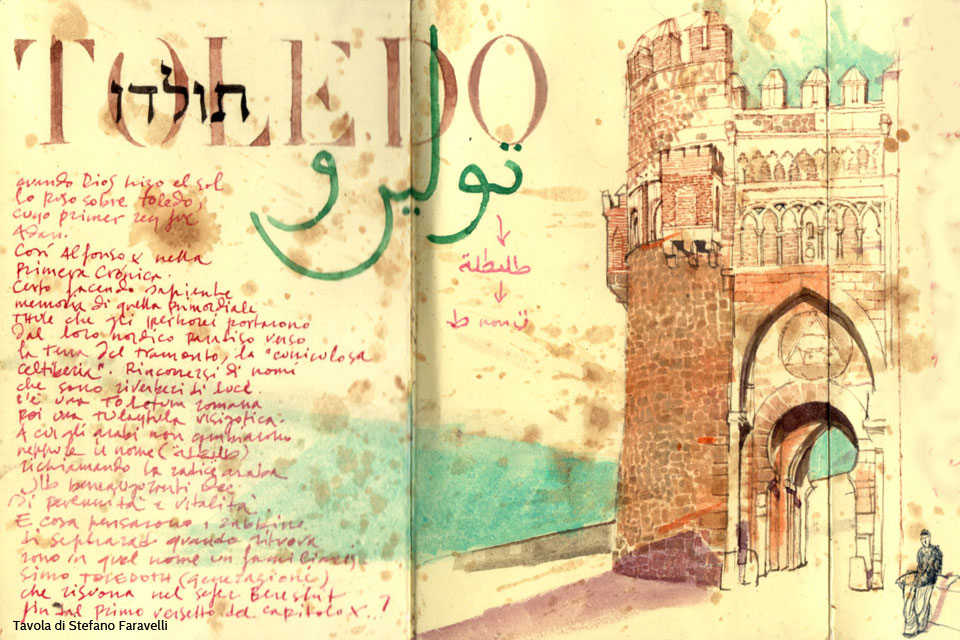 TOLEDO
תולדו
توليدو
طليطلة
ط non ت
quando Dios hizo el sol
lo puso sobre Toledo,
cuyo primer rey fue
Adan.
Così Alfonso X nella
Primera Crónica.
Certo facendo sapiente
memoria di quella primordiale
Thule che gli iperborei portarono
dal loro nordico paradiso verso
la Terra del Tramonto, la "cuniculosa
celtiberia". Rincorrersi di nomi
che sono riverberi di luce.
C'è una Toletum romana
poi una Tulaytula visigotica.
A cui gli arabi non cambiarono
neppure il nome
richiamando la radice araba
di perennità e vitalità
E cosa pensarono i rabbini
di Sepharad quando ritrova
rono in quel nome un familiaris
simo TOLEDOTH (generazione)
che risuona nel Sefer Bereshit
fin dal primo versetto del capitolo X..?
Tavola di Stefano Faravelli